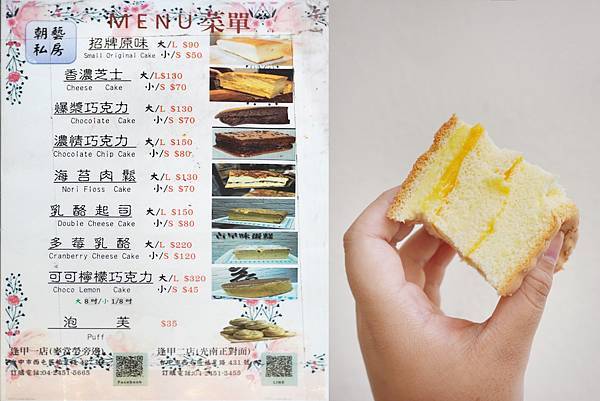 朝藝
私房
MENU菜單
招牌原味 大/L $90
Small Original Cake 小/S $50
香濃芝士 大/L$130
Cheese Cake 小/S $70
爆漿巧克力 大/L $130
Chocolate Cake 小/S $70
濃情巧克力 大/L $150
Chocolate Chip Cake 小/S $80
海苔肉鬆 大/L $130
Nori Floss Cake 小/S $70
乳酪起司 大/L $150
Double Cheese Cake 小/S $80
多莓乳酪 大/L $220
Cranberry Cheese Cake 小/S $120
可可檸檬巧克力 大/L $320
Choco Lemon Cake 小/S $45
大 8吋/小 1/8吋
泡芙 $35
Puff
逢甲一店(麥當勞旁邊)
訂購電話:04-2451-5665
Facebook
逢甲二店(光南正對面)
431號
訂購電話:04-2451-3455
LINE